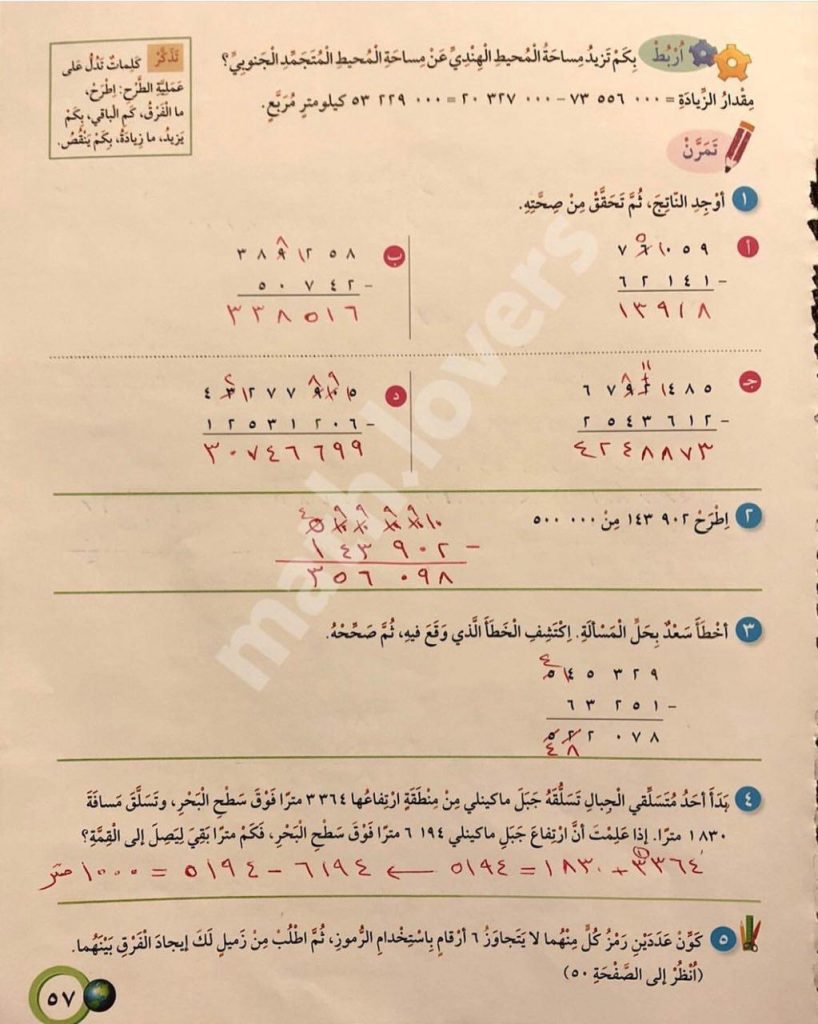 أُرْبُطْ بِكَمْ تَزيدُ مِساحَةُ الْمُحيطِ الْهِنْدِيِّ عَنْ مِساحَةِ الْمُحيطِ الْمُتَجَمِّدِ الْجَنوبِيِّ؟
مِقْدارُ الزِّيادَةِ = ٧٣ ٥٥٦ ٠٠٠ − ٢٠ ٣٢٧ ٠٠٠ = ٥٣ ٢٢٩ ٠٠٠ كيلومترٍ مُرَبَّعٍ.
تَذَكَّرْ كَلِماتٌ تَدُلُّ عَلى
عَمَلِيَّةِ الطَّرْحِ: اِطْرَحْ،
ما الْفَرْقُ، كَمِ الْباقي، بِكَمْ
يَزيدُ، ما زِيادَةُ، بِكَمْ يَنْقُصُ.
تَمَرَّنْ
١ أَوْجِدِ النّاتِجَ، ثُمَّ تَحَقَّقْ مِنْ صِحَّتِهِ.
أ
٥ ١
٧ ٦ ٠ ٥ ٩
٦ ٢ ١ ٤ ١ −
١ ٣ ٩ ١ ٨
ب
٨ ١
٣ ٨ ٩ ٢ ٥ ٨
٥ ٠ ٧ ٤ ٢ −
٣ ٣ ٨ ٥ ١ ٦
جـ
٨ ١١ ١
٦ ٧ ٩ ٢ ٤ ٨ ٥
٢ ٥ ٤ ٣ ٦ ١ ٢ −
٤ ٢ ٤ ٨ ٨ ٧ ٣
د
٢ ١ ٨ ٩ ١
٤ ٣ ٢ ٧ ٧ ٩ ٠ ٥
١ ٢ ٥ ٣ ١ ٢ ٠ ٦ −
٣ ٠ ٧ ٤ ٦ ٦ ٩ ٩
٢ اِطْرَحْ ٩٠٢ ١٤٣ مِنْ ٥٠٠ ٠٠٠
٤ ٩ ٩ ٩ ٩
٥ ١٠ ١٠ ١٠ ١٠ ١٠
١ ٤ ٣ ٩ ٠ ٢ −
٣ ٥ ٦ ٠ ٩ ٨
٣ أَخْطَأَ سَعْدٌ بِحَلِّ الْمَسْأَلَةِ. اِكْتَشِفِ الْخَطَأَ الَّذي وَقَعَ فيهِ، ثُمَّ صَحِّحْهُ.
٤ ١
٥ ٤ ٥ ٣ ٢ ٩
٦ ٣ ٢ ٥ ١ −
٥ ٢ ٢ ٠ ٧ ٨
٤ ٨
٤ بَدَأَ أَحَدُ مُتَسَلِّقي الْجِبالِ تَسَلُّقَهُ جَبَلَ ماكينلي مِنْ مِنْطَقَةٍ ارْتِفاعُها ٣٣٦٤ مترًا فَوْقَ سَطْحِ الْبَحْرِ، وتَسَلَّقَ مَسافَةَ
١٨٣٠ مترًا. إذا عَلِمْتَ أَنَّ ارْتِفاعَ جَبَلِ ماكينلي ٦ ١٩٤ مترًا فَوْقَ سَطْحِ الْبَحْرِ، فَكَمْ مترًا بَقِيَ لِيَصِلَ إلى الْقِمَّةِ؟
٣٣٦٤ + ١٨٣٠ = ٥١٩٤ ← ٦١٩٤ − ٥١٩٤ = ١٠٠٠ متر
٥ كَوِّنْ عَدَدَيْنِ رَمْزُ كُلٍّ مِنْهُما لا يَتَجاوَزُ ٦ أَرْقامٍ بِاسْتِخْدامِ الرُّموزِ، ثُمَّ اطْلُبْ مِنْ زَميلٍ لَكَ إيجادَ الْفَرْقِ بَيْنَهُما.
(اُنْظُرْ إلى الصَّفْحَةِ ٥٠)
٥٧
math.lovers